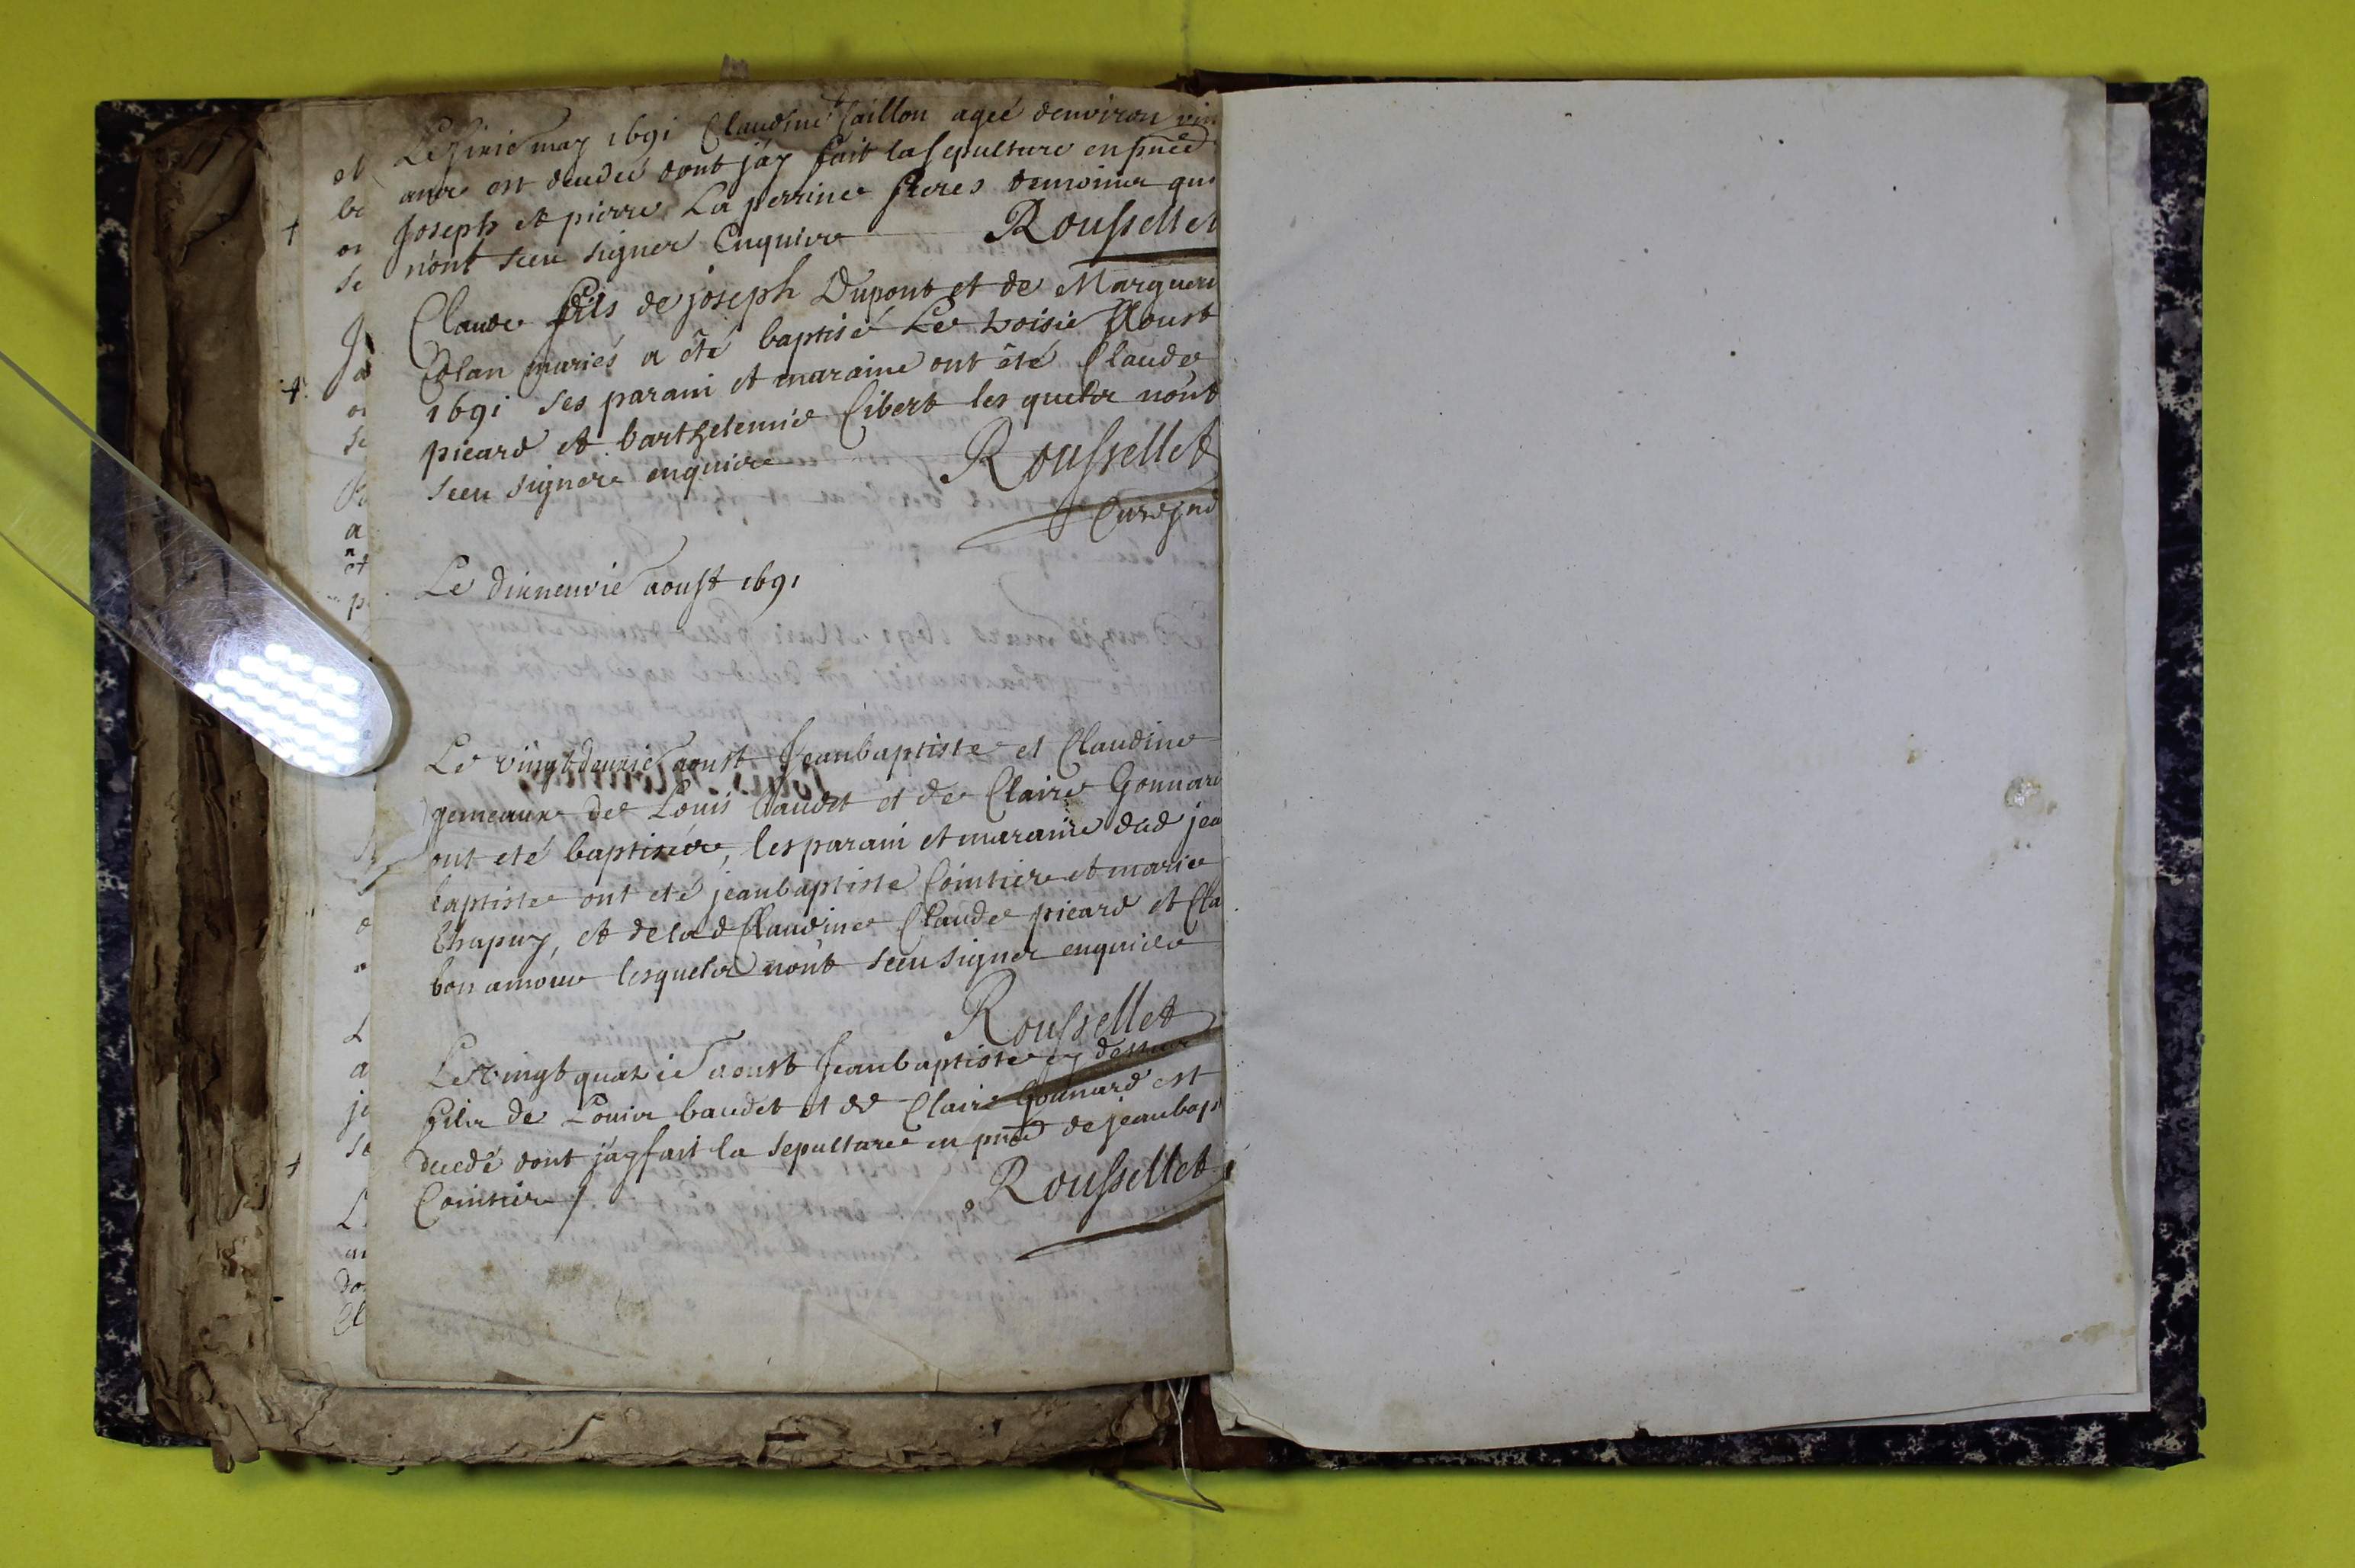 Le sixie may 1691 Claudine Caillon ageé denviron vin
ans est decedeé dont jáy fait la sepulture en pnce d
Joseph et pierre La perrine freres temoins qui
nónt sceu signer Enquis Roussellet
Claude fils de joseph Dupont et de Margueri
Colan mariés a été baptisé Le troisie Aoust
1691 ses parain et maraine ont été Claude
picard et barthelemie Cibert les quels nónt
sceu signer enquis Roussellet
Curé
Le dixneuvie aoust 1691
Le vingtdeuxie aoust Jeanbaptiste et Claudine
gemeaux de Louis baudet et de Claire Gonnard
ont eté baptisés, les parain et maraine dud jea
baptiste ont eté jeanbaptiste Cointier et marie
Chapuy, et de lad Claudine Claude picard et Cla
bon amour lesquels nónt sceu signer enquis
Roussellet
Le vingt quatrie aoust Jeanbaptiste cy dessus
fils de Louis baudet et de Claire Gonnard est
decedé dont jáy fait la sepulture en pnce de jeanbap
Cointier / Roussellet